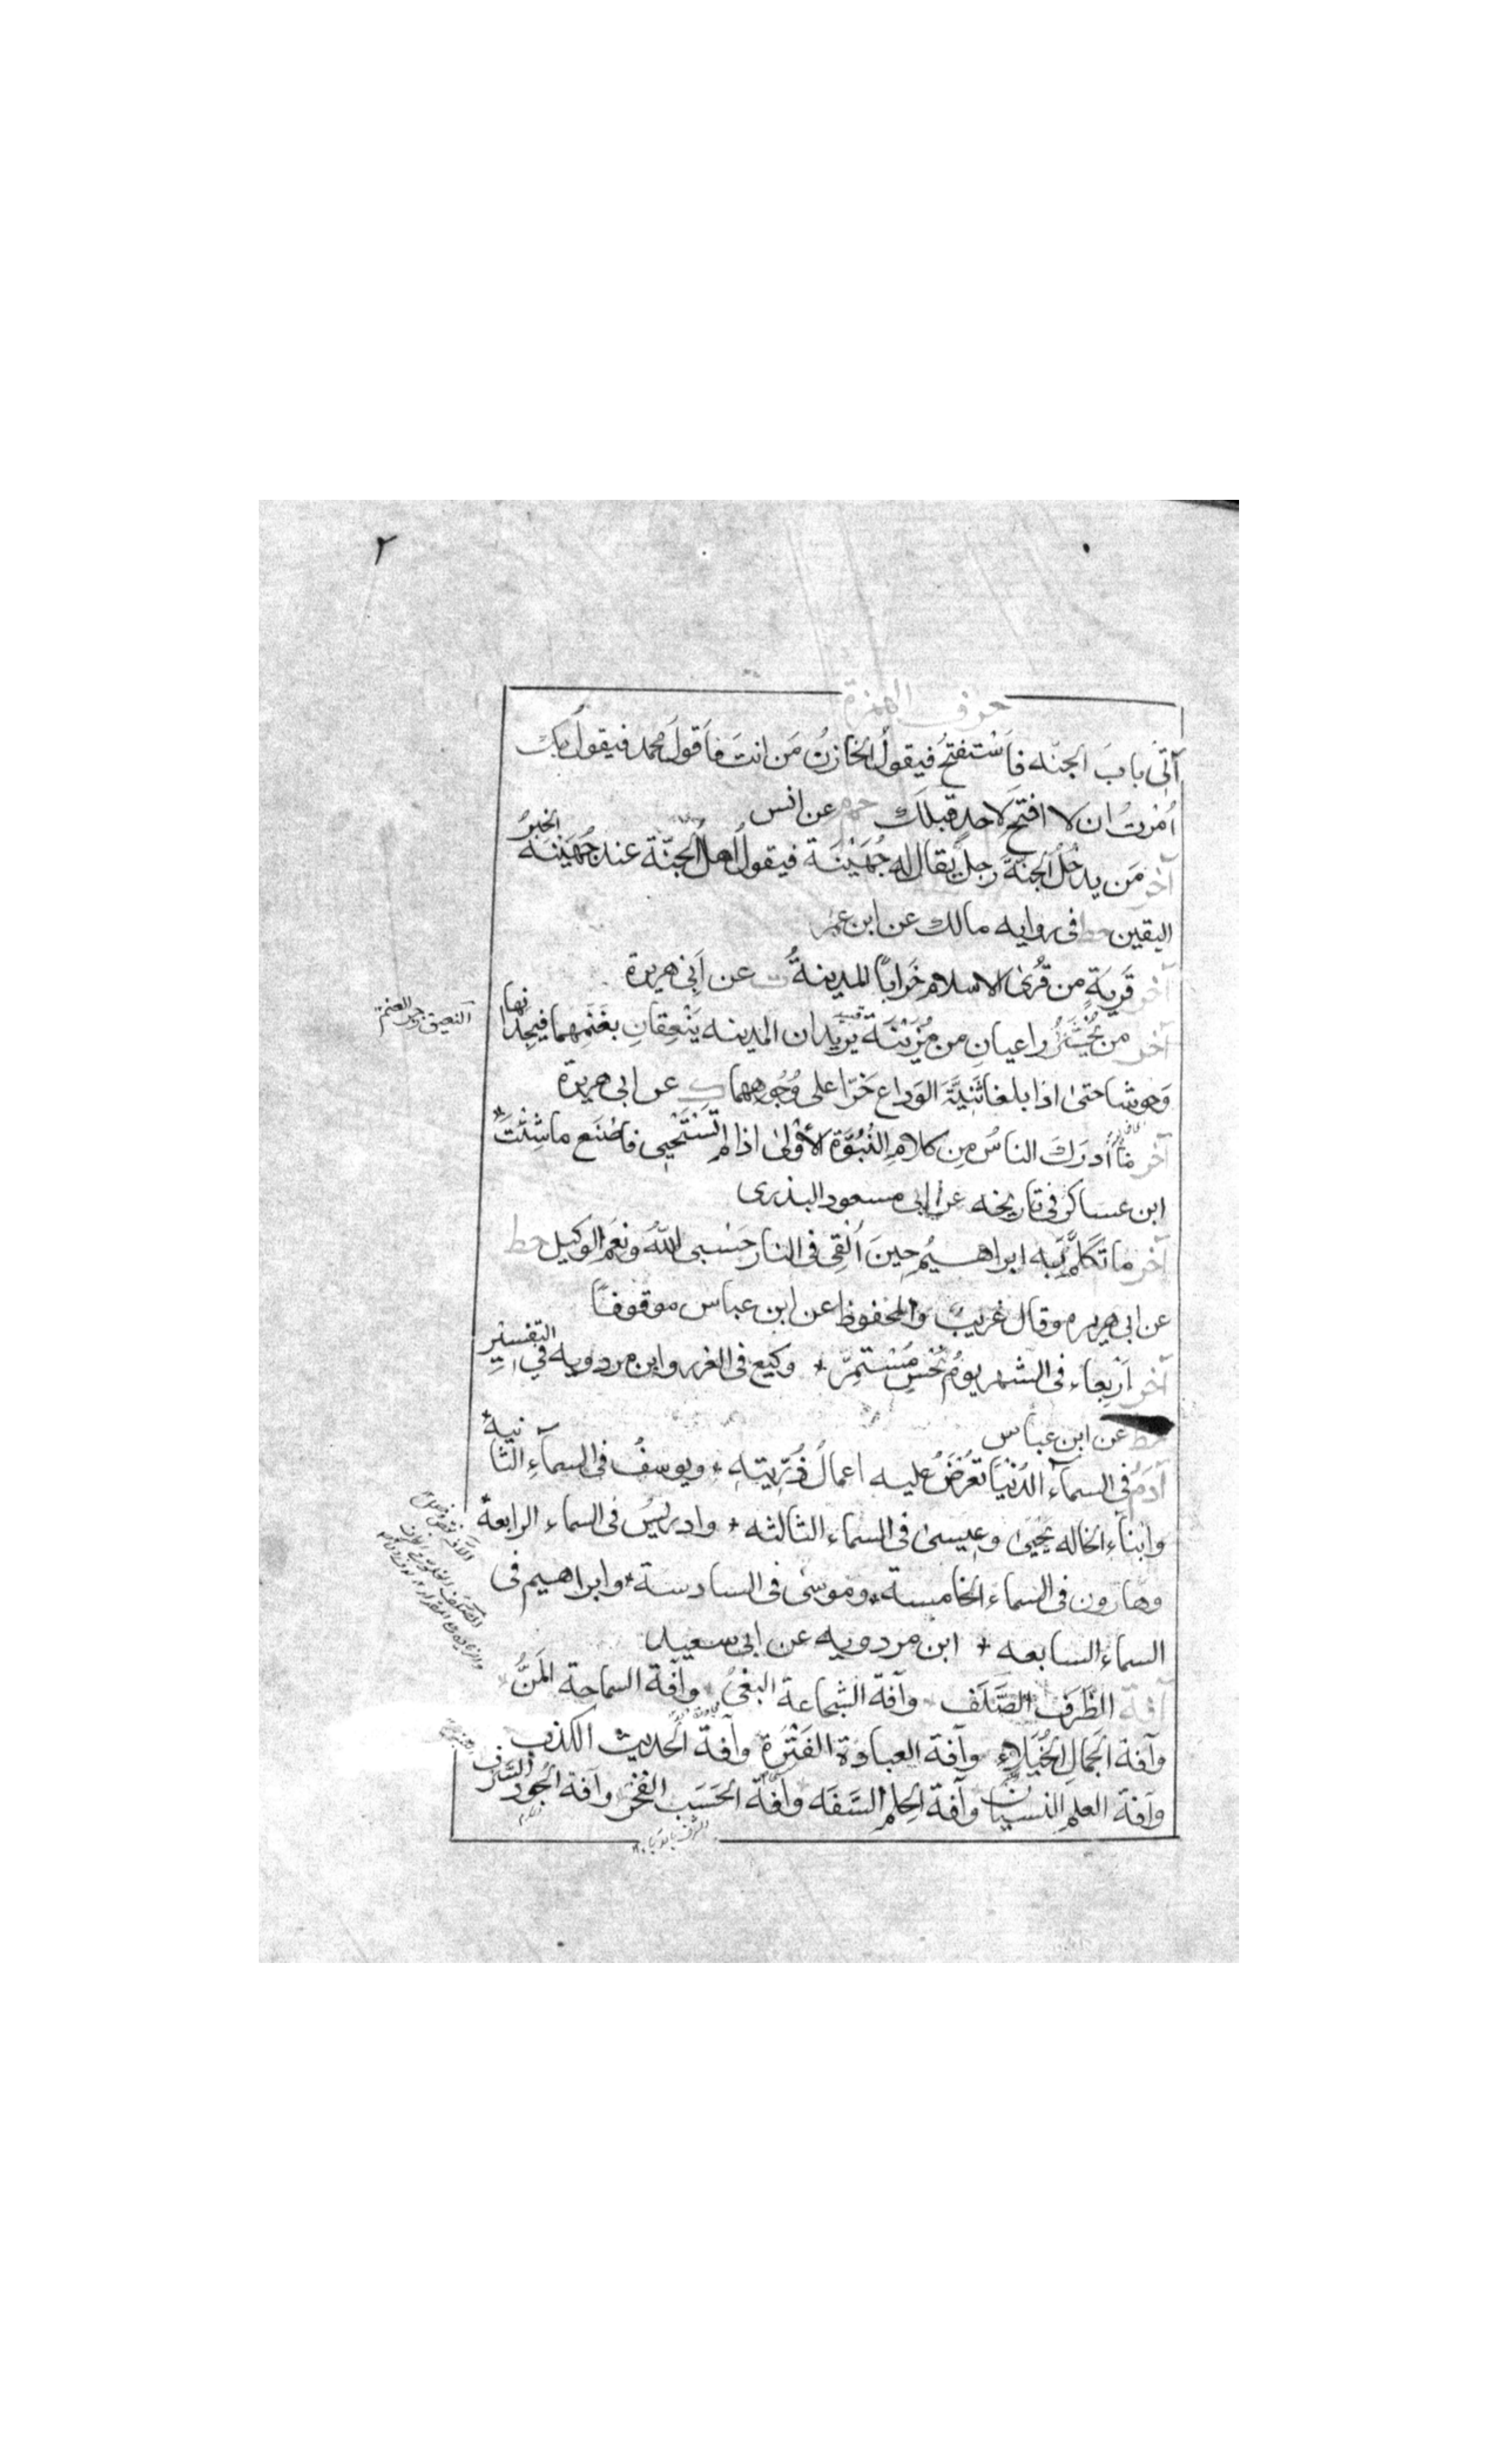 ٢
حرف الهمزة
آتِي بابَ الجنّه فاَسْتفتحُ فيقولُ الخازنُ مَن انتَ فاَقولُ محمد فيقولُ بِكَ
اُمرتُ ان لا افتح لاحدٍ قبلَك حم م عن انس
آخر مَن يدخُلُ الجنّةَ رجلٌ يقال له جُهَيْنَة فيقول اهلُ الجنّة عند جُهَيْنَة الخبرُ
اليقين خط فى رواية مالك عن ابن عمر
آخر قَريةٍ من قُرىٰ الاسلام خَرابًا المدينةُ ت عن اَبى هريرة
آخر من يُحْشَرُ راعيانِ من مُزَيْنَة يريدان المدينه يَنْعِقانِ بغَنَمِهما فيجدانها
النعيق زجر الغنم
وحوشا حتىٰ اذا بلغا ثَنِيَّةَ الوَداع خَرّا على وُجُوههما ك عن ابى هريرة
آخر ما أدرَكَ الناسُ مِن كلامِ النُّبُوَّة الأُوْلىٰ اذا لم تَسْتَحْيِي فاصْنَع ما شِئْتَ
ابن عساكر فى تاريخه عن ابى مسعود البدرى
آخر ما تكلَّم به ابراهيمُ حِينَ اُلْقِىَ فى النار حَسْبى اللّٰهُ ونِعْمَ الوكيل خط
عن ابى هريره وقال غريبٌ والمحفوظ عن ابن عباس موقوفًا
آخر اَربعاء فى الشهر يومُ نَحْسٍ مُسْتمِرّ وكيع فى الغرر وابن مردويه في التفسيرِ
خط عن ابن عباس
آدمُ فى السمآءِ الدُنْيا تُعْرَضُ عليه اعمالُ ذُرِّيتِهِ ويوسفُ فى السمآءِ الثانيةِ
وابناءِ الخاله يَحْيىٰ وعِيسىٰ فى السماء الثالثه وادريسُ فى السماء الرابعة
وهَارون فى السماء الخامسة وموسىٰ فى السادسة وابراهيم فى
السماء السابعه ابن مردويه عن ابى سعيد
آفة الظَرفِ الصَّلَف وآفة الشجاعة البغىُ وآفة السماحة المَنُّ
وآفة الجَمالِ الخُيَلاء وآفة العبادة الفَتْرَة وآفة الحديث الكذب
وآفة العلم النسيان وآفة الحِلم السَّفَه وآفة الحَسَب الفخر وآفة الجُود السَّرف